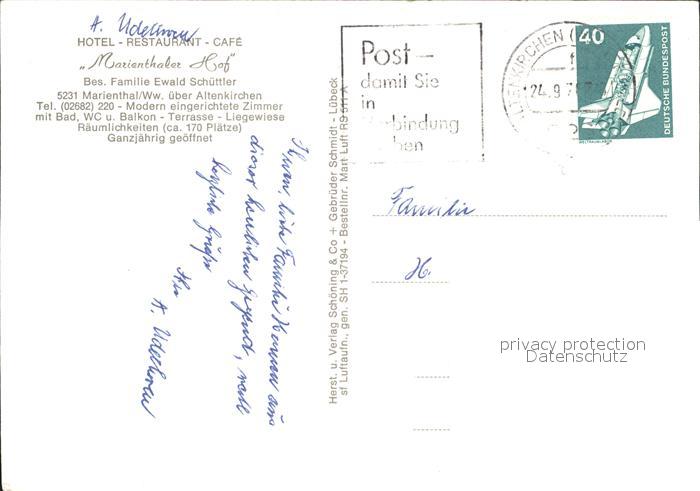 A. Udelhoven
HOTEL - RESTAURANT - CAFÉ
„Marienthaler Hof"
Bes. Familie Ewald Schüttler
5231 Marienthal/Ww. über Altenkirchen
Tel. (02682) 220 - Modern eingerichtete Zimmer
mit Bad, WC u. Balkon - Terrasse - Liegewiese
Räumlichkeiten (ca. 170 Plätze)
Ganzjährig geöffnet
Ihnen, liebe Familie aus
dieser herrlichen Gegend, recht
herzliche Grüße
Ihr
A. Udelhoven
Herst. u. Verlag Schöning & Co + Gebrüder Schmidt - Lübeck
sf Luftaufn., gen. SH 1-37194 - Bestellnr. Mart Luft RS 511 A
Post -
damit Sie
in
Verbindung
ben
ALTENKIRCHEN
24.9.7
40
DEUTSCHE BUNDESPOST
WELTRAUMLABOR
Familie
H.
privacy protection
Datenschutz